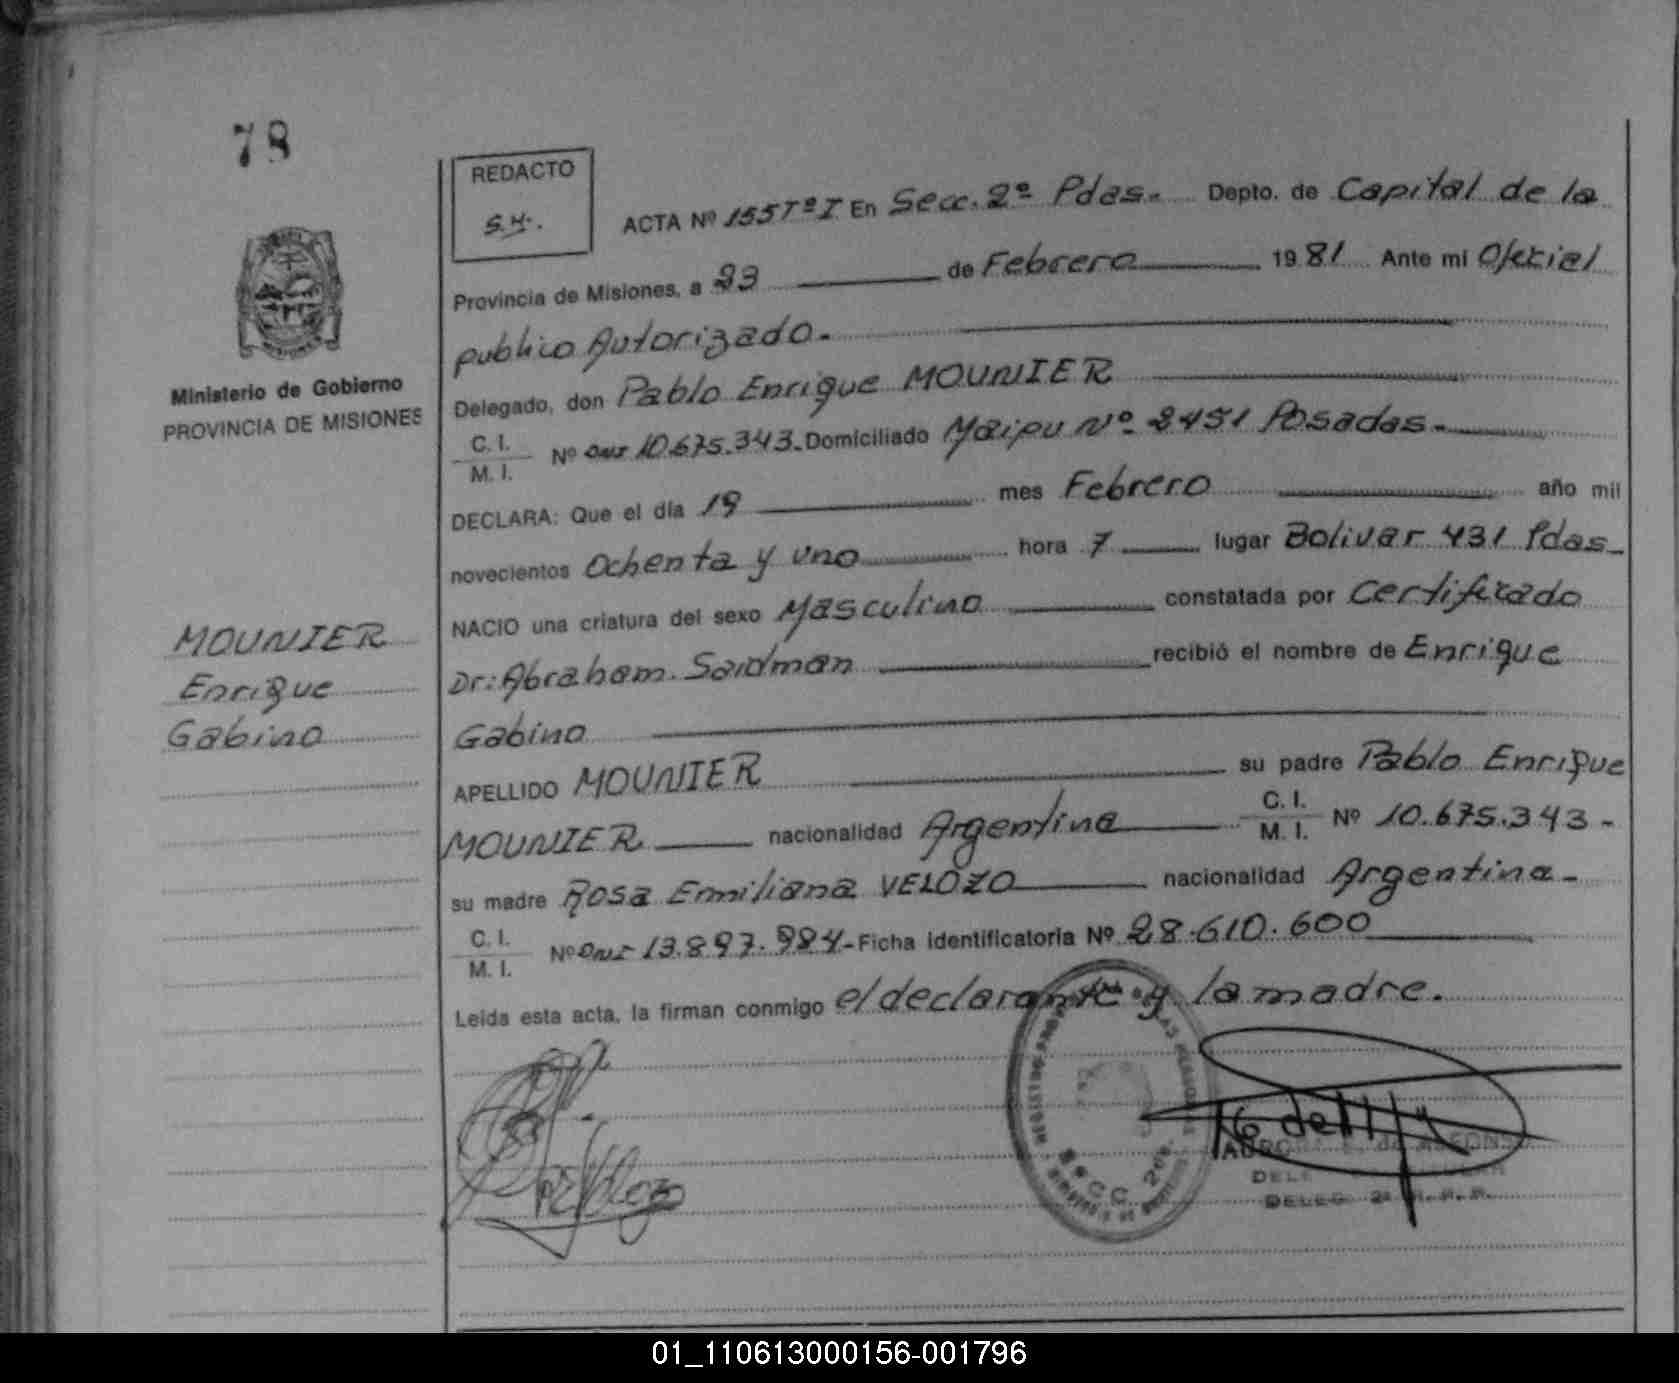 78
REDACTO
S.H.
ACTA Nº 155 Tº I En Secc. 2º Pdas. Depto. de Capital de la
Provincia de Misiones, a 23 de Febrero 1981 Ante mi Oficial
publico Autorizado.
Ministerio de Gobierno
PROVINCIA DE MISIONES
Delegado, don Pablo Enrique MOUNIER
C. I.
M. I.
Nº DNI 10.675.343. Domiciliado Maipu Nº 2451 Posadas.
DECLARA: Que el día 19 mes Febrero año mil
novecientos Ochenta y uno hora 7 lugar Bolivar 431 Pdas
NACIO una criatura del sexo Masculino constatada por Certificado
Dr: Abraham Saidman recibió el nombre de Enrique
Gabino
MOUNIER
Enrique
Gabino
APELLIDO MOUNIER su padre Pablo Enrique
MOUNIER nacionalidad Argentina C. I. M. I. Nº 10.675.343-
su madre Rosa Emiliana VELOZO nacionalidad Argentina-
C. I.
M. I.
Nº DNI 13.897.984- Ficha identificatoria Nº 28.610.600
Leída esta acta, la firman conmigo el declarante y la madre.
SECC. 2da.
DELEG. 2ª
01_110613000156-001796